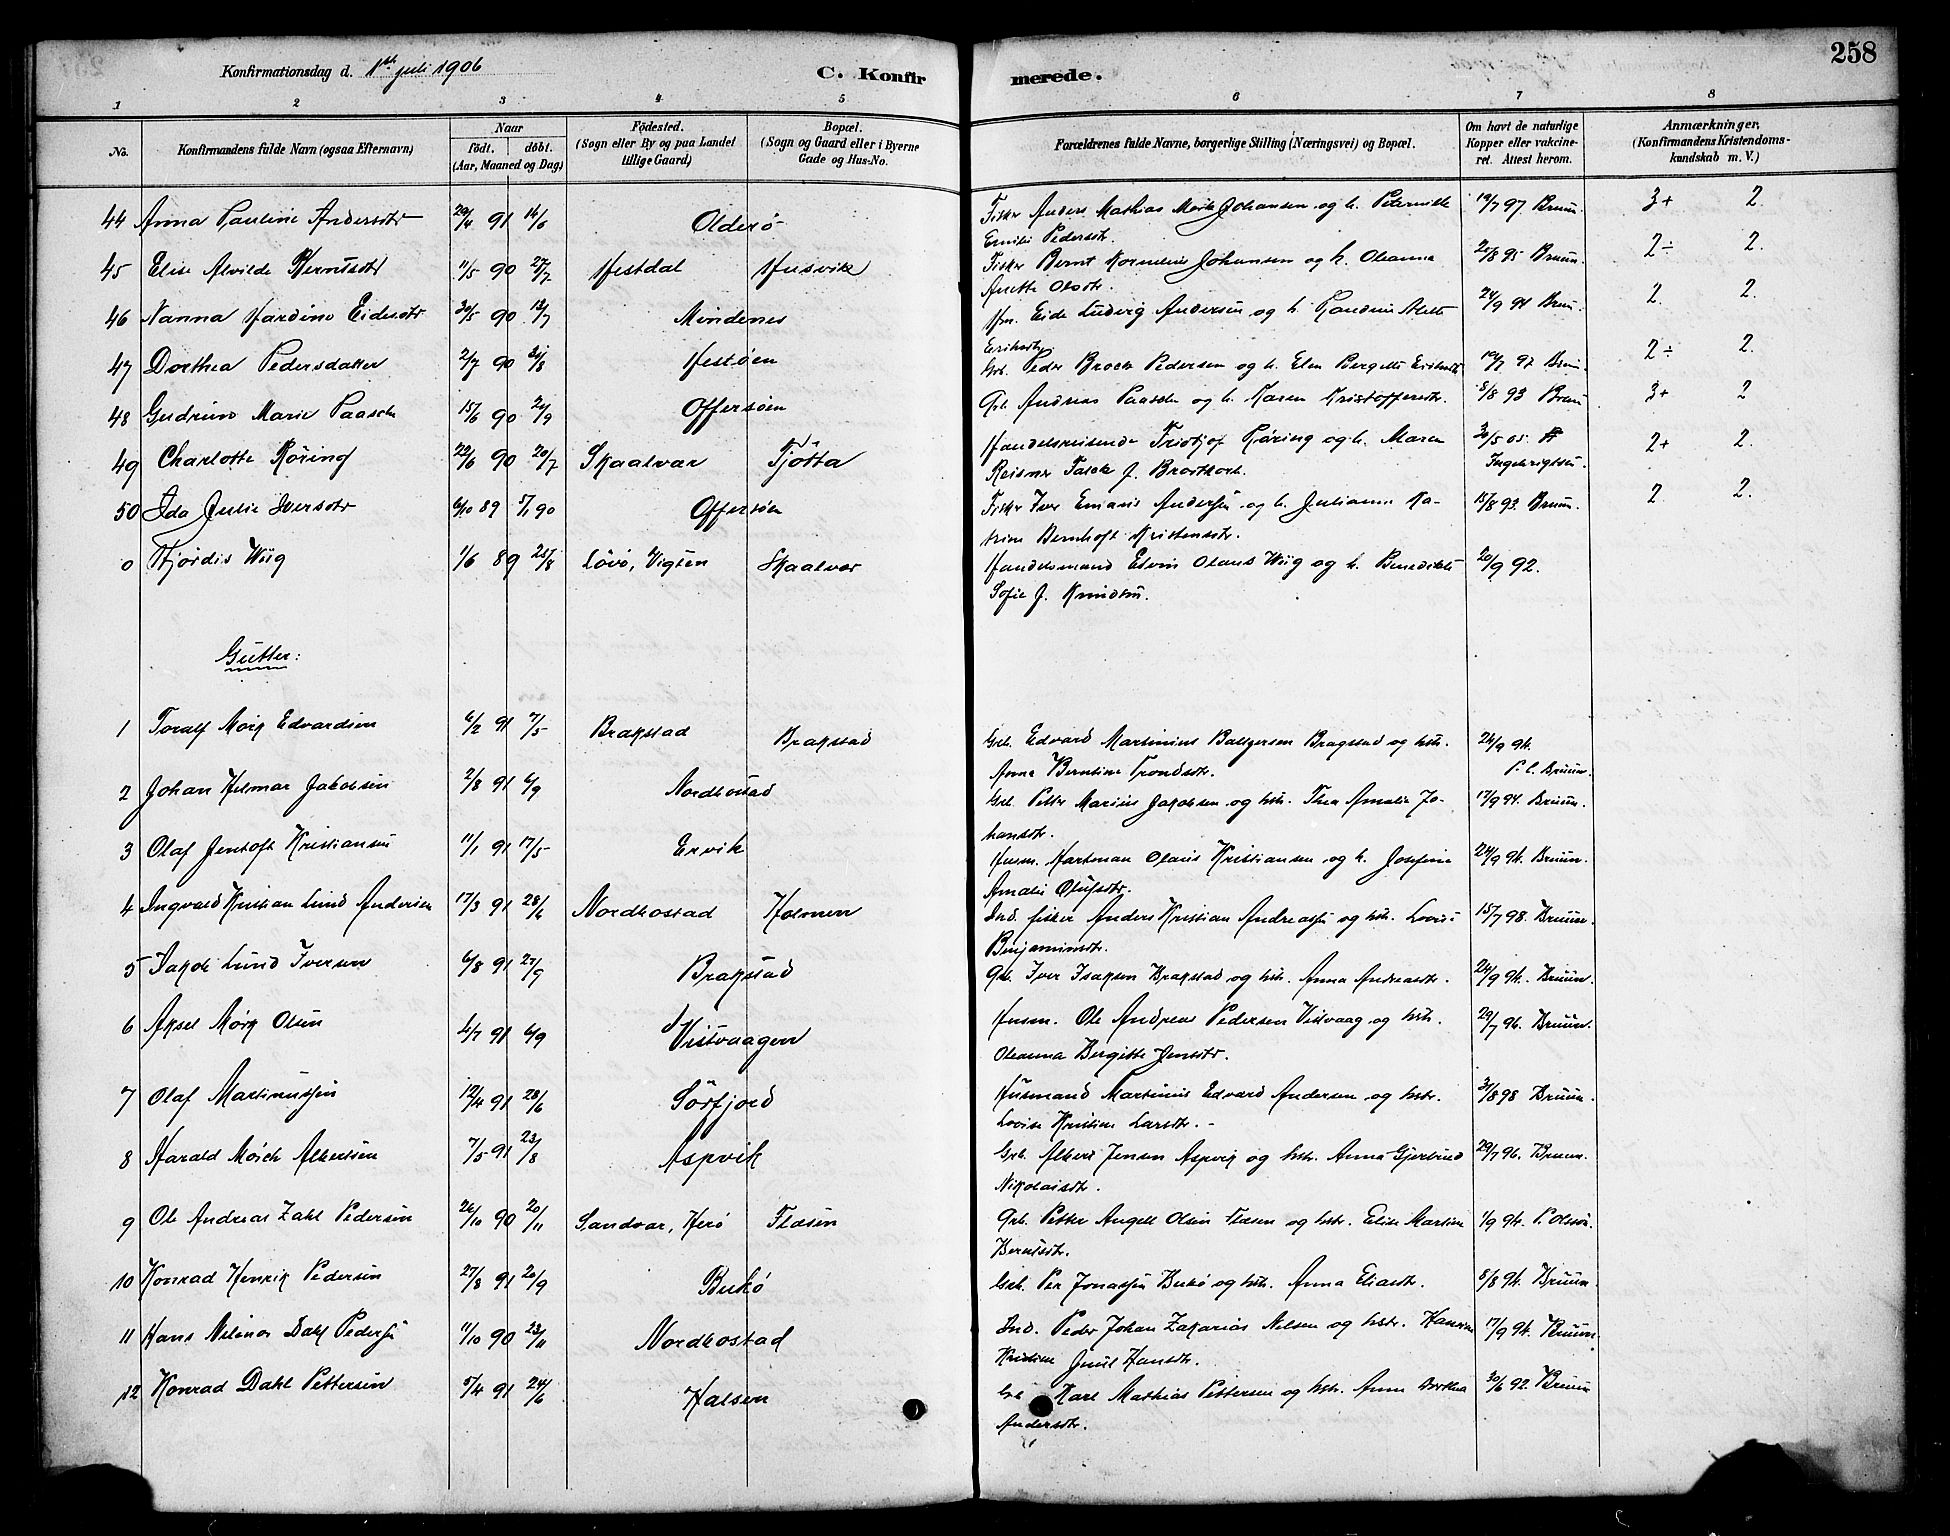 258
Konfirmationsdag d. 1ste juli 1906
C. Konfirmerede.
1 2 3 4 5 6 7 8
No. Konfirmandens fulde Navn (ogsaa Efternavn) Naar Födt. döbt. (Aar, Maaned og Dag) Födested. (Sogn eller By og paa Landet tillige Gaard) Bopæl. (Sogn og Gaard eller i Byerne Gade og Hus-No. Forældrenes fulde Navne, borgerlige Stilling (Næringsvei) og Bopæl. Om havt de naturlige Kopper eller vakcineret. Attest herom. Anmærkninger, (Konfirmandens Kristendomskundskab m. V.)
44 Anna Pauline Andersdtr 29/4 91 14/6 Olderö Fisker Anders Mathias Mörk Johansen og h. Peternille 19/7 97 Bruun. 3+ 2.
Emilie Pedersdtr.
45 Elise Alvilde Berntsdtr 11/5 90 27/7 Hestdal Husvik Fisker Bernt Kornelius Johansen og h. Oleanna 20/8 95 Bruun. 2÷ 2.
Anette Olsdtr.
46 Nanna Hardine Eidesdtr 30/5 90 13/7 Mindenes Hm. Eide Ludvig Andersen og h. 24/9 94 Bruun. 2. 2.
Eriksdtr.
47 Dorthea Pedersdatter 2/7 90 31/8 Hestöen Grb. Peder Brock Pedersen og h. Elen Bergette Eriksdtr 19/7 97 Bruun. 2÷ 2.
48 Gudrun Marie Paasche 15/6 90 20/9 Offersöen Grb. Andreas Paasche og h. Karen Kristoffersdtr. 8/8 93 Bruun 3+ 2
49 Charlotte Röring 22/6 90 20/7 Skaalvær Tjötta Handelsreisende Fridtjof Röring og h. Maren 30/5 05. 2+ 2.
Reisner Fasch f. Brodtkorb. Ingebrigtsen.
50 Ida Julie Iversdtr 6/10 89 5/1 90 Offersöen Fisker Iver Emanus Andersen og h. Julianne Ka- 15/8 93. Bruun. 2 2.
trine Bernhoft Kristensdtr.
0 Hjördis Wiig 1/6 89 25/8 Lövö, Vigten Skaalvær Handelsmand Edvin Olaus Wiig og h. Benedikte 20/9 92.
Sofie f. Knudsen.
Gutter:
1 Toralf Mörk Edvardsen 6/2 91 7/5 Brakstad Brakstad Grb. Edvard Martinius Baltzersen Bragstad og hst. 24/9 94.
Anna Berntine Trondsdtr. P. C. Bruun.
2 Johan Hilmar Jakobsen 2/8 91 6/9 Nordhostad Grb. Petter Marius Jakobsen og hst. Thea Amalie Jo- 17/9 94. Bruun.
hansdtr.
3 Olaf Jentoft Kristiansen 11/1 91 17/5 Ervik Husm. Hartman Olaus Kristiansen og h. Josefine 24/9 94. Bruun.
Amalie Olufsdtr.
4 Ingvald Kristian Lund Andersen 17/3 91 28/6 Nordhostad Holmen Ind. fisker Anders Kristian Andreassen og hst. Lovise 15/7 98 Bruun.
Benjaminsdtr.
5 Jakob Lund Iversen 6/8 91 27/9 Brakstad Grb. Iver Isaksen Brakstad og hst. Anna Andreasdtr. 24/9 94. Bruun.
6 Aksel Mörk Olsen 4/7 91 6/9 Vistvaagen Husm. Ole Andreas Pedersen Vistvaag og hst. 29/7 96. Bruun.
Oleanna Bergitte Jensdtr.
7 Olaf Martinussen 12/4 91 28/6 Sörfjord Husmand Martinus Edvard Andersen og hst. 31/8 98 Bruun.
Lovise Kristine Larsdtr.
8 Harald Mörch Albertsen 7/5 91 23/8 Aspvik Grb. Albert Jensen Aspvik og hst. Anna Gjertrud 29/7 96. Bruun.
Nikolaisdtr.
9 Ole Andreas Zahl Pedersen 26/10 90 20/11 Sandvær, Herö Flæsen Grb. Petter Angell Olsen Flæsen og hst. Elise Martine 1/9 94. P. Olssön.
Berntsdtr.
10 Konrad Henrik Pedersen 27/8 91 20/9 Bukö Grb. Per Jonassen Bukö og hst. Anna Eliasdtr. 8/8 94. Bruun.
11 Hans Nilenor Dahl Peders. 11/10 90 23/11 Nordhostad Ind. Peder Johan Zakarias Nilsen og hst. Hansine 17/9 94. Bruun.
Kristine Juul Hansdtr.
12 Konrad Dahl Pettersen 5/4 91 24/6 Halsen Grb Karl Mathias Pettersen og hst. Anna Dorthea 30/6 92. Bruun
Andersdtr.